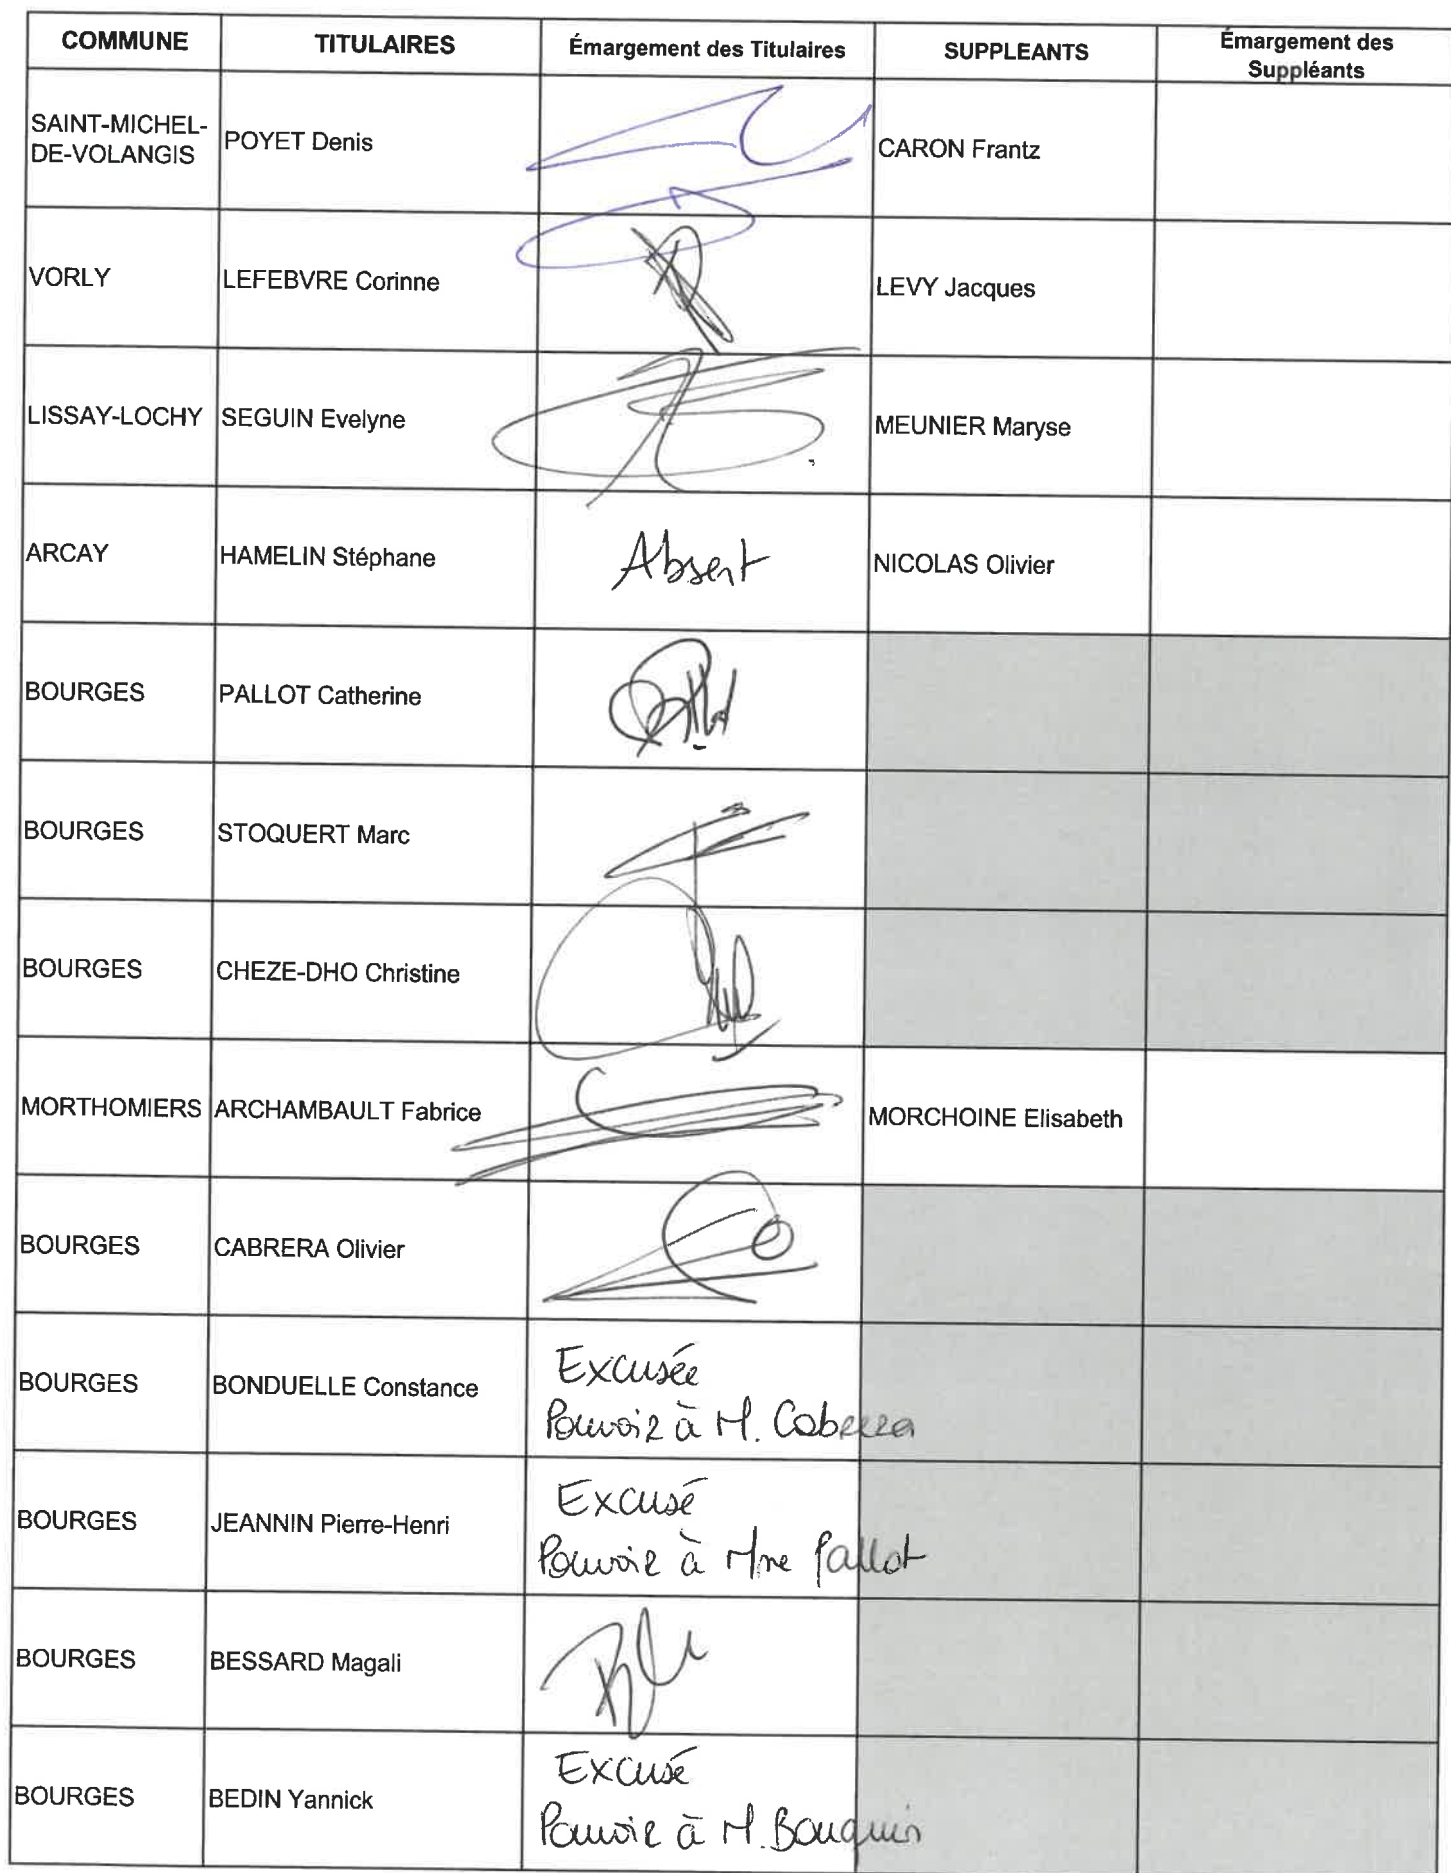 COMMUNE TITULAIRES Émargement des Titulaires SUPPLEANTS Émargement des
Suppléants
SAINT-MICHEL-
DE-VOLANGIS POYET Denis CARON Frantz
VORLY LEFEBVRE Corinne LEVY Jacques
LISSAY-LOCHY SEGUIN Evelyne MEUNIER Maryse
ARCAY HAMELIN Stéphane Absent NICOLAS Olivier
BOURGES PALLOT Catherine
BOURGES STOQUERT Marc
BOURGES CHEZE-DHO Christine
MORTHOMIERS ARCHAMBAULT Fabrice MORCHOINE Elisabeth
BOURGES CABRERA Olivier
BOURGES BONDUELLE Constance Excusée
Pouvoir à M. Cabrera
BOURGES JEANNIN Pierre-Henri Excusé
Pouvoir à Mme Pallot
BOURGES BESSARD Magali
BOURGES BEDIN Yannick Excusé
Pouvoir à M. Bouquin